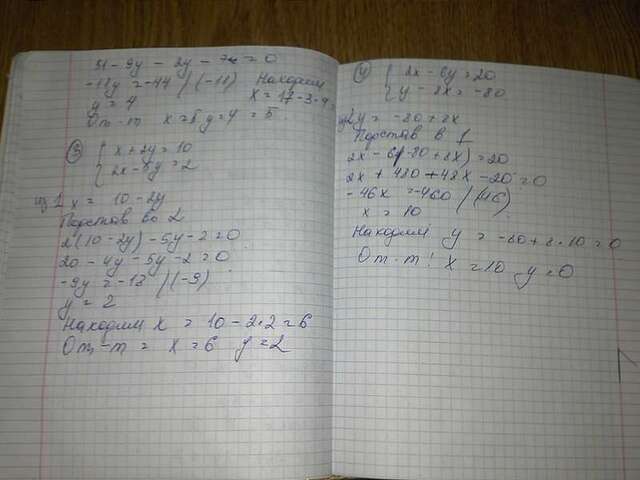 51 - 9y - 2y - 7 = 0
-11y = -44 / (-11) Находим
y = 4 x = 17 - 3 · 4
От-т x = 5 y = 4 = 5
③ { x + 2y = 10
{ 2x - 5y = 2
из 1 x = 10 - 2y
Подстав во 2
2(10 - 2y) - 5y - 2 = 0
20 - 4y - 5y - 2 = 0
-9y = -18 / (-9)
y = 2
Находим x = 10 - 2 · 2 = 6
От-т = x = 6 y = 2
④ { 2x - 6y = 20
{ y - 8x = -80
из 2 y = -80 + 8x
Подстав в 1
2x - 6(-80 + 8x) = 20
2x + 480 + 48x - 20 = 0
-46x = -460 / (46)
x = 10
Находим y = -80 + 8 · 10 = 0
От-т! x = 10 y = 0